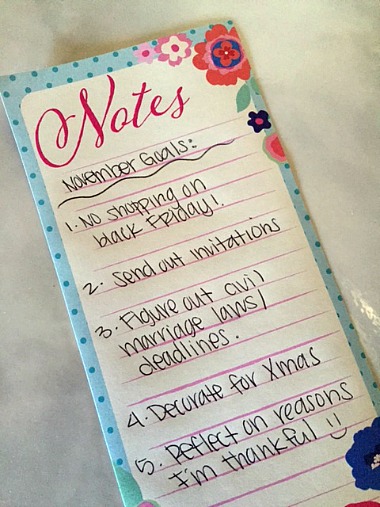 Notes
November Goals:
1. No shopping on
black Friday!
2. Send out invitations
3. Figure out civil
marriage laws/
deadlines.
4. Decorate for Xmas
5. Reflect on reasons
I'm thankful